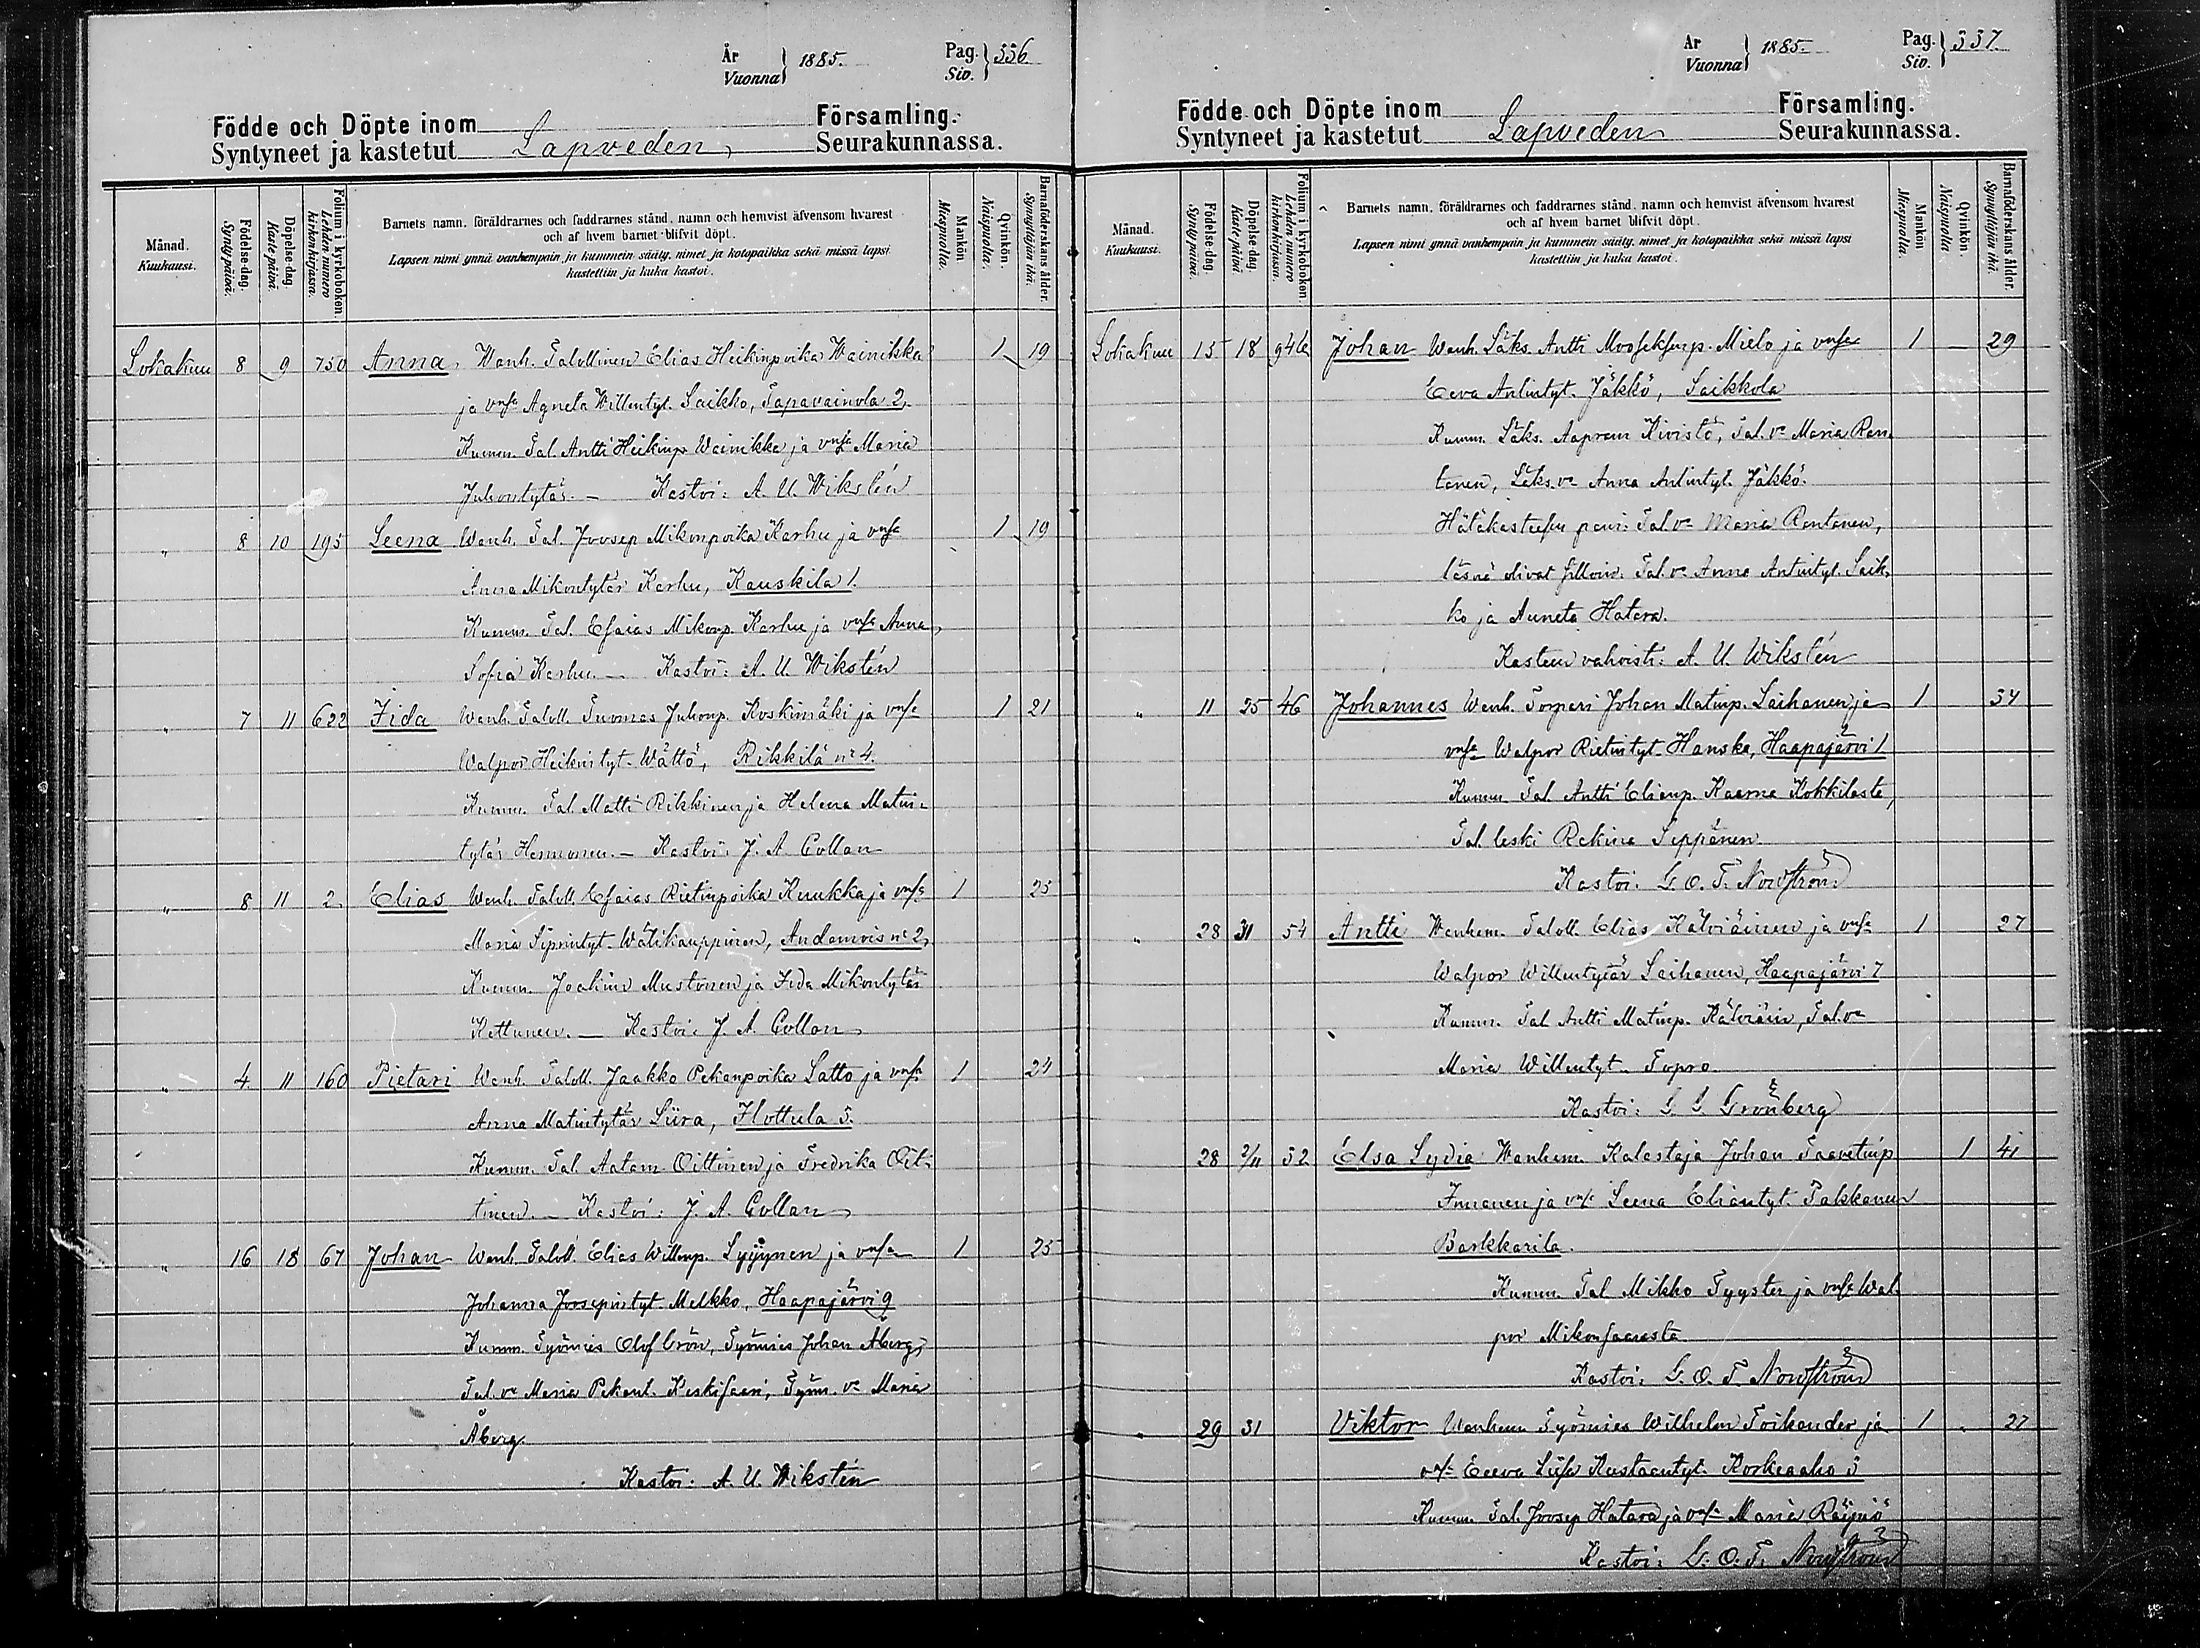 År
Vuonna } 1885.
Pag.
Siv. } 336.
Födde och Döpte inom Lapveden Församling.
Syntyneet ja kastetut Seurakunnassa.
Månad.
Kuukausi.
Födelse-dag.
Syntypäivä.
Döpelse-dag.
Kaste päivä.
Folium i kyrkoboken
Lehden numero
kirkonkirjassa.
Barnets namn, föräldrarnes och faddrarnes stånd, namn och hemvist äfvensom hvarest
och af hvem barnet blifvit döpt.
Lapsen nimi ynnä vanhempain ja kummein sääty, nimet ja kotopaikka sekä missä lapsi
kastettiin ja kuka kastoi.
Mankön
Miespuolia.
Qvinkön.
Naispuolia.
Barnaföderskans ålder.
Synnyttäjän ikä.
Lokakuu 8 9 750 Anna. Wanh. Talollinen Elias Heikinpoika Wainikka 1 19
ja vmsa Agneta Willentyt. Saikko, Tapavainola 2,
Kumm. Tal. Antti Heikinp. Wainikka ja vmsa Maria
Juhontytär. – Kastoi: A. U. Wikstén
" 8 10 195 Leena Wanh. Tal. Joosep Mikonpoika Karhu ja vmsa 1 19
Anna Mikontytär Karhu, Kauskila 1.
Kumm. Tal. Esaias Mikonp. Karhu ja vmsa Anna
Sofia Karhu. – Kastoi: A. U. Wikstén
" 7 11 622 Fida Wanh. Taloll. Tuomas Juhonp. Koskimäki ja vmsa 1 21
Walpor Heikintyt. Wättö, Rikkilä no 4.
Kumm. Tal. Matti Rikkinen ja Helena Matin-
tytär Hermonen. – Kastoi: J. A. Collan
" 8 11 2 Elias Wanh. Taloll. Esaias Pietinpoika Kuukka ja vmsa 1 25
Maria Siprintyt. Wälikauppinen, Andamois no 2,
Kumm. Joakim Mustonen ja Fida Mikontytär
Kettunen. – Kastoi: J. A. Collan
" 4 11 160 Pietari Wanh. Taloll. Jaakko Pekanpoika Satto ja vmsa 1 24
Anna Matintytär Liira, Hottula 5.
Kumm. Tal. Aatam Oittinen ja Fredrika Oit-
tinen. – Kastoi: J. A. Collan
" 16 18 67 Johan Wanh. Taloll. Elias Willenp. Lyijynen ja vmsa 1 25
Johanna Joosepintyt. Melkko, Haapajärvi 9
Kumm. Työmies Olof Grön, Työmies Johan Åberg,
Tal. va Maria Pekant. Keskisaari, Työm. va Maria
Åberg.
Kastoi: A. U. Wikstén
År
Vuonna } 1885.
Pag.
Siv. } 337.
Födde och Döpte inom Lapveden Församling.
Syntyneet ja kastetut Seurakunnassa.
Månad.
Kuukausi.
Födelse-dag.
Synty päivä.
Döpelse-dag.
Kaste päivä.
Folium i kyrkoboken
Lehden numero
kirkonkirjassa.
Barnets namn, föräldrarnes och faddrarnes stånd, namn och hemvist äfvensom hvarest
och af hvem barnet blifvit döpt.
Lapsen nimi ynnä vanhempain ja kummein sääty, nimet ja kotopaikka sekä missä lapsi
kastettiin ja kuka kastoi.
Mankön.
Miespuolia.
Qvinkön.
Naispuolia.
Barnaföderskans ålder.
Synnyttäjän ikä.
Lokakuu 15 18 946 Johan Wanh. Läks. Antti Mooseksenp. Mielo ja vmsa 1 – 29
Eeva Antintyt. Jäkkö, Saikkola
Kumm. Läks. Aapram Kivistö, Tal. va Maria Ran-
tanen, Läks. va Anna Antintyt. Jäkkö.
Hätäkasteen pani: Tal. va Maria Rantanen,
läsnä olivat silloin: Tal. va Anna Antintyt. Saik-
ko ja Auneta Hatara.
Kasteen vahvisti: A. U. Wikstén
" 11 25 46 Johannes Wanh. Torpari Johan Matinp. Laihanen ja 1 34
vmsa Walpor Pietintyt. Hanska, Haapajärvi 1
Kumm. Tal. Antti Elianp. Kaarna Kokkilasta,
Tal. leski Rekina Seppänen
Kastoi: G. O. F. Nordström
" 28 31 54 Antti Wanhem. Taloll. Elias Kälviäinen ja vmsa 1 27
Walpor Willentytär Laihanen, Haapajärvi 7
Kumm. Tal. Antti Matinp. Kälviäin, Tal. va
Maria Willentyt. Topra
Kastoi: G G Grönberg
28 2/11 52 Elsa Lydia Wanhem. Kalastaja Johan Taavetinp 1 41
Immonen ja vmsa Leena Eliantyt. Pakkanen
Barkkarila.
Kumm. Tal Mikko Tyyster ja vmsa Wal-
por Mikonsaaresta
Kastoi: G. O. F. Nordström
" 29 31 Viktor Wanhem Työmies Wilhelm Toikander ja 1 27
vmsa Eeva Liisa Kustaantyt. Korkeaaho 5
Kumm. Tal. Joosep Hatara ja vmsa Maria Räipiö
Kastoi: G. O. F. Nordström